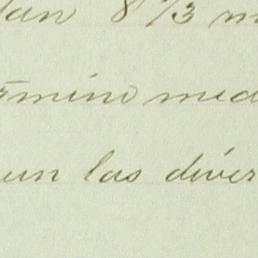 dan 8 1/3 m
érmino med
un las diver